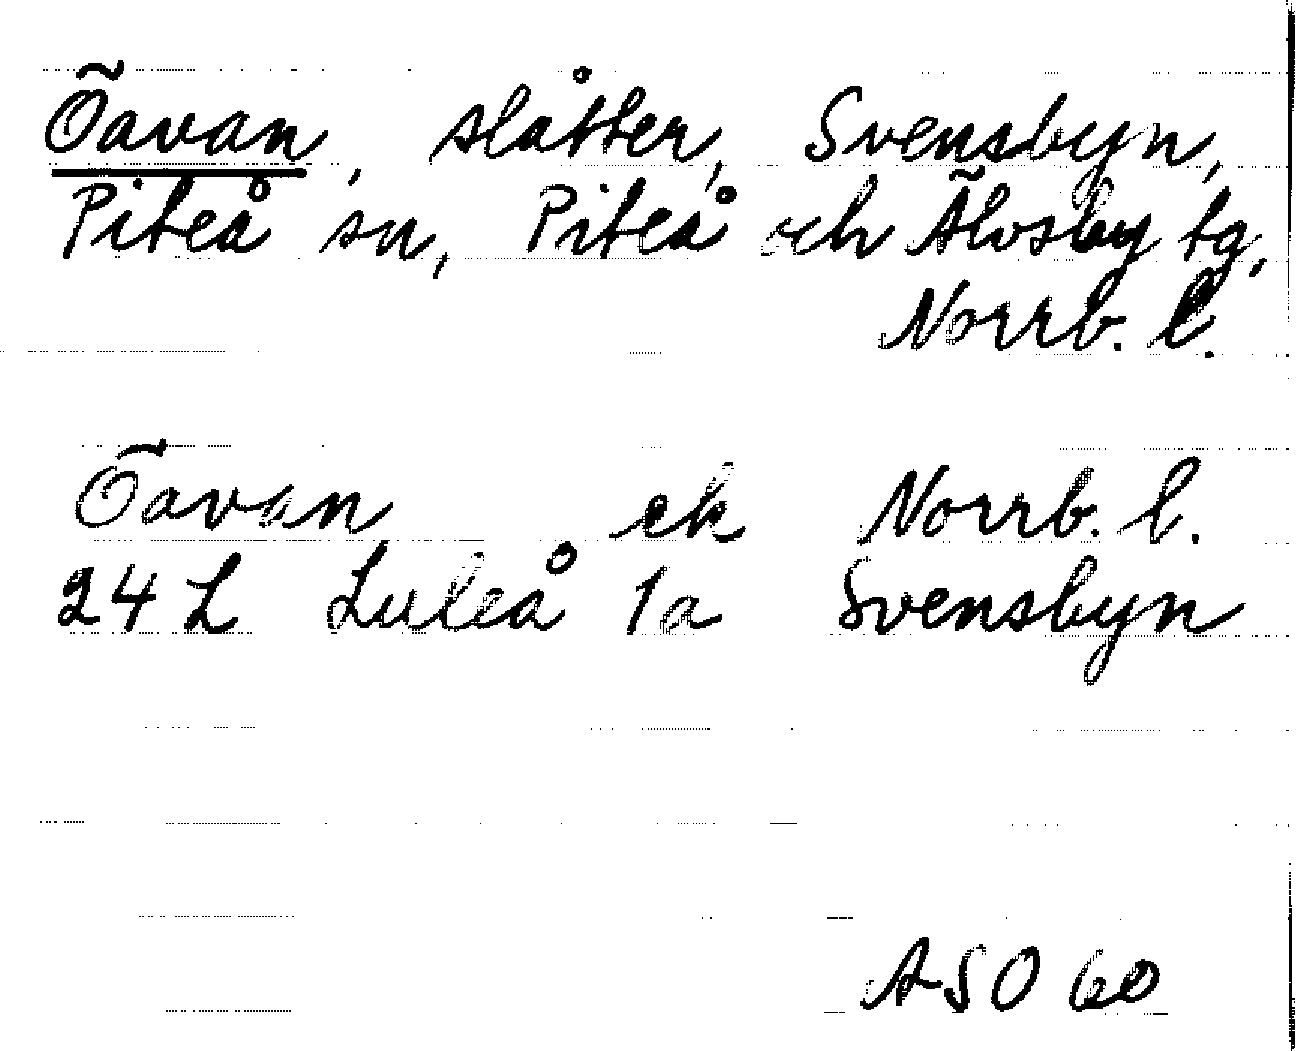 Öavan, slåtter, Svensbyn,
Piteå sn, Piteå och Älvsby tg,
Norrb. l.
Öavan ek Norrb. l.
24 L Luleå 1a Svensbyn
ASO 60